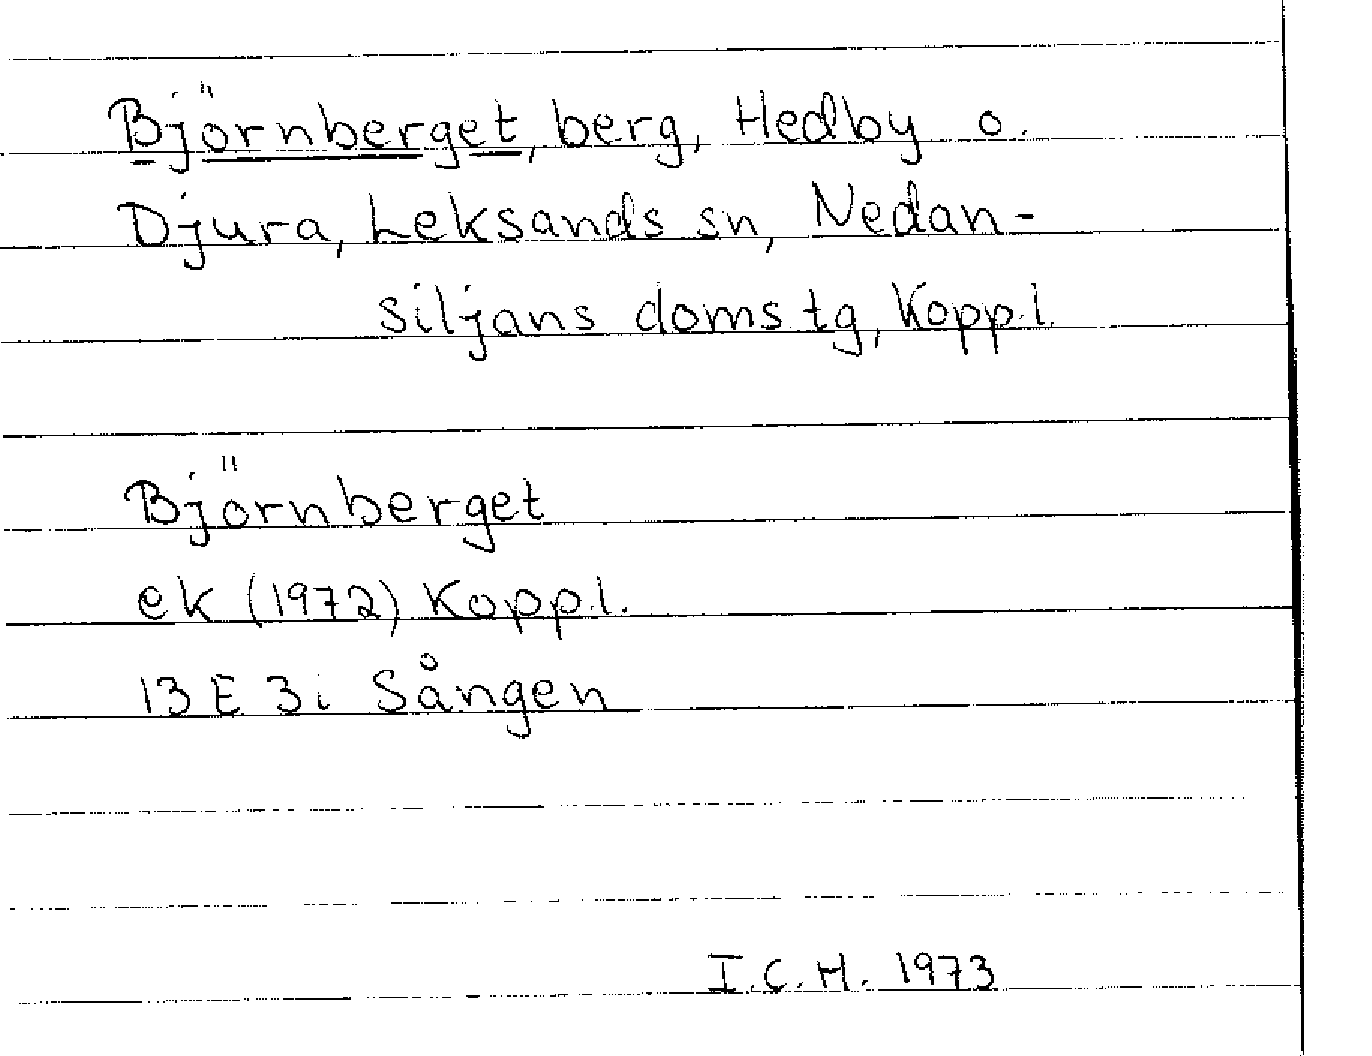 Björnberget, berg, Hedby o.
Djura, Leksands sn, Nedan-
siljans domstg, Kopp.l.
Björnberget
ek (1972) Kopp.l.
13 E 3 i Sången
I.C.H. 1973